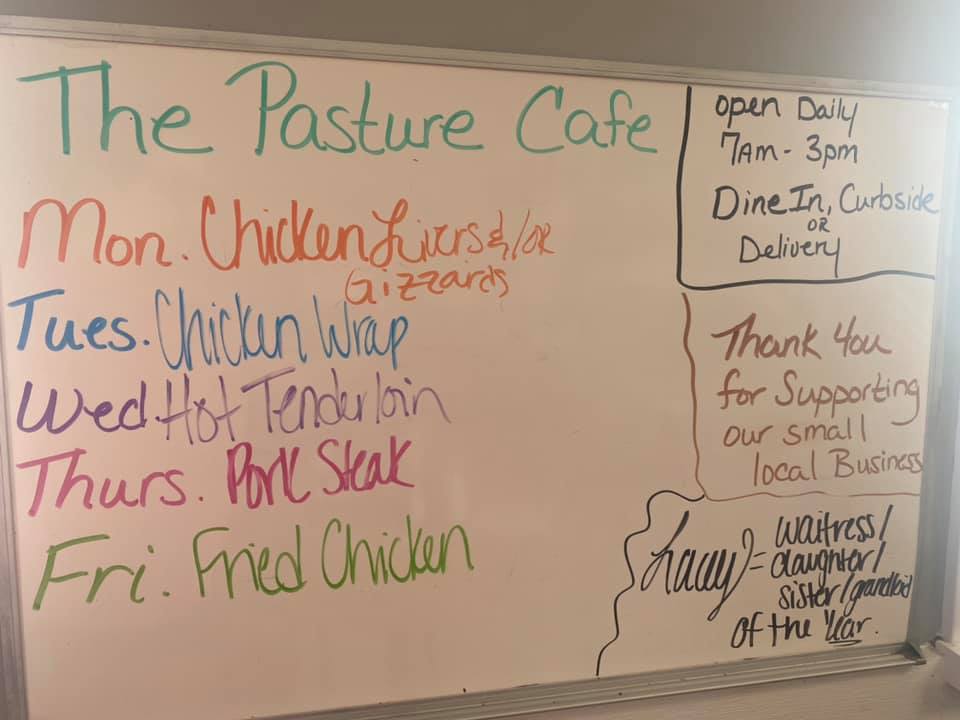 The Pasture Cafe
Mon. Chicken Livers &/or
Gizzards
Tues. Chicken Wrap
Wed. Hot Tenderloin
Thurs. Pork Steak
Fri. Fried Chicken
open Daily
7AM - 3pm
Dine In, Curbside
OR
Delivery
Thank You
for Supporting
our small
local Business
= waitress/
daughter/
sister/grandkid
of the Year.